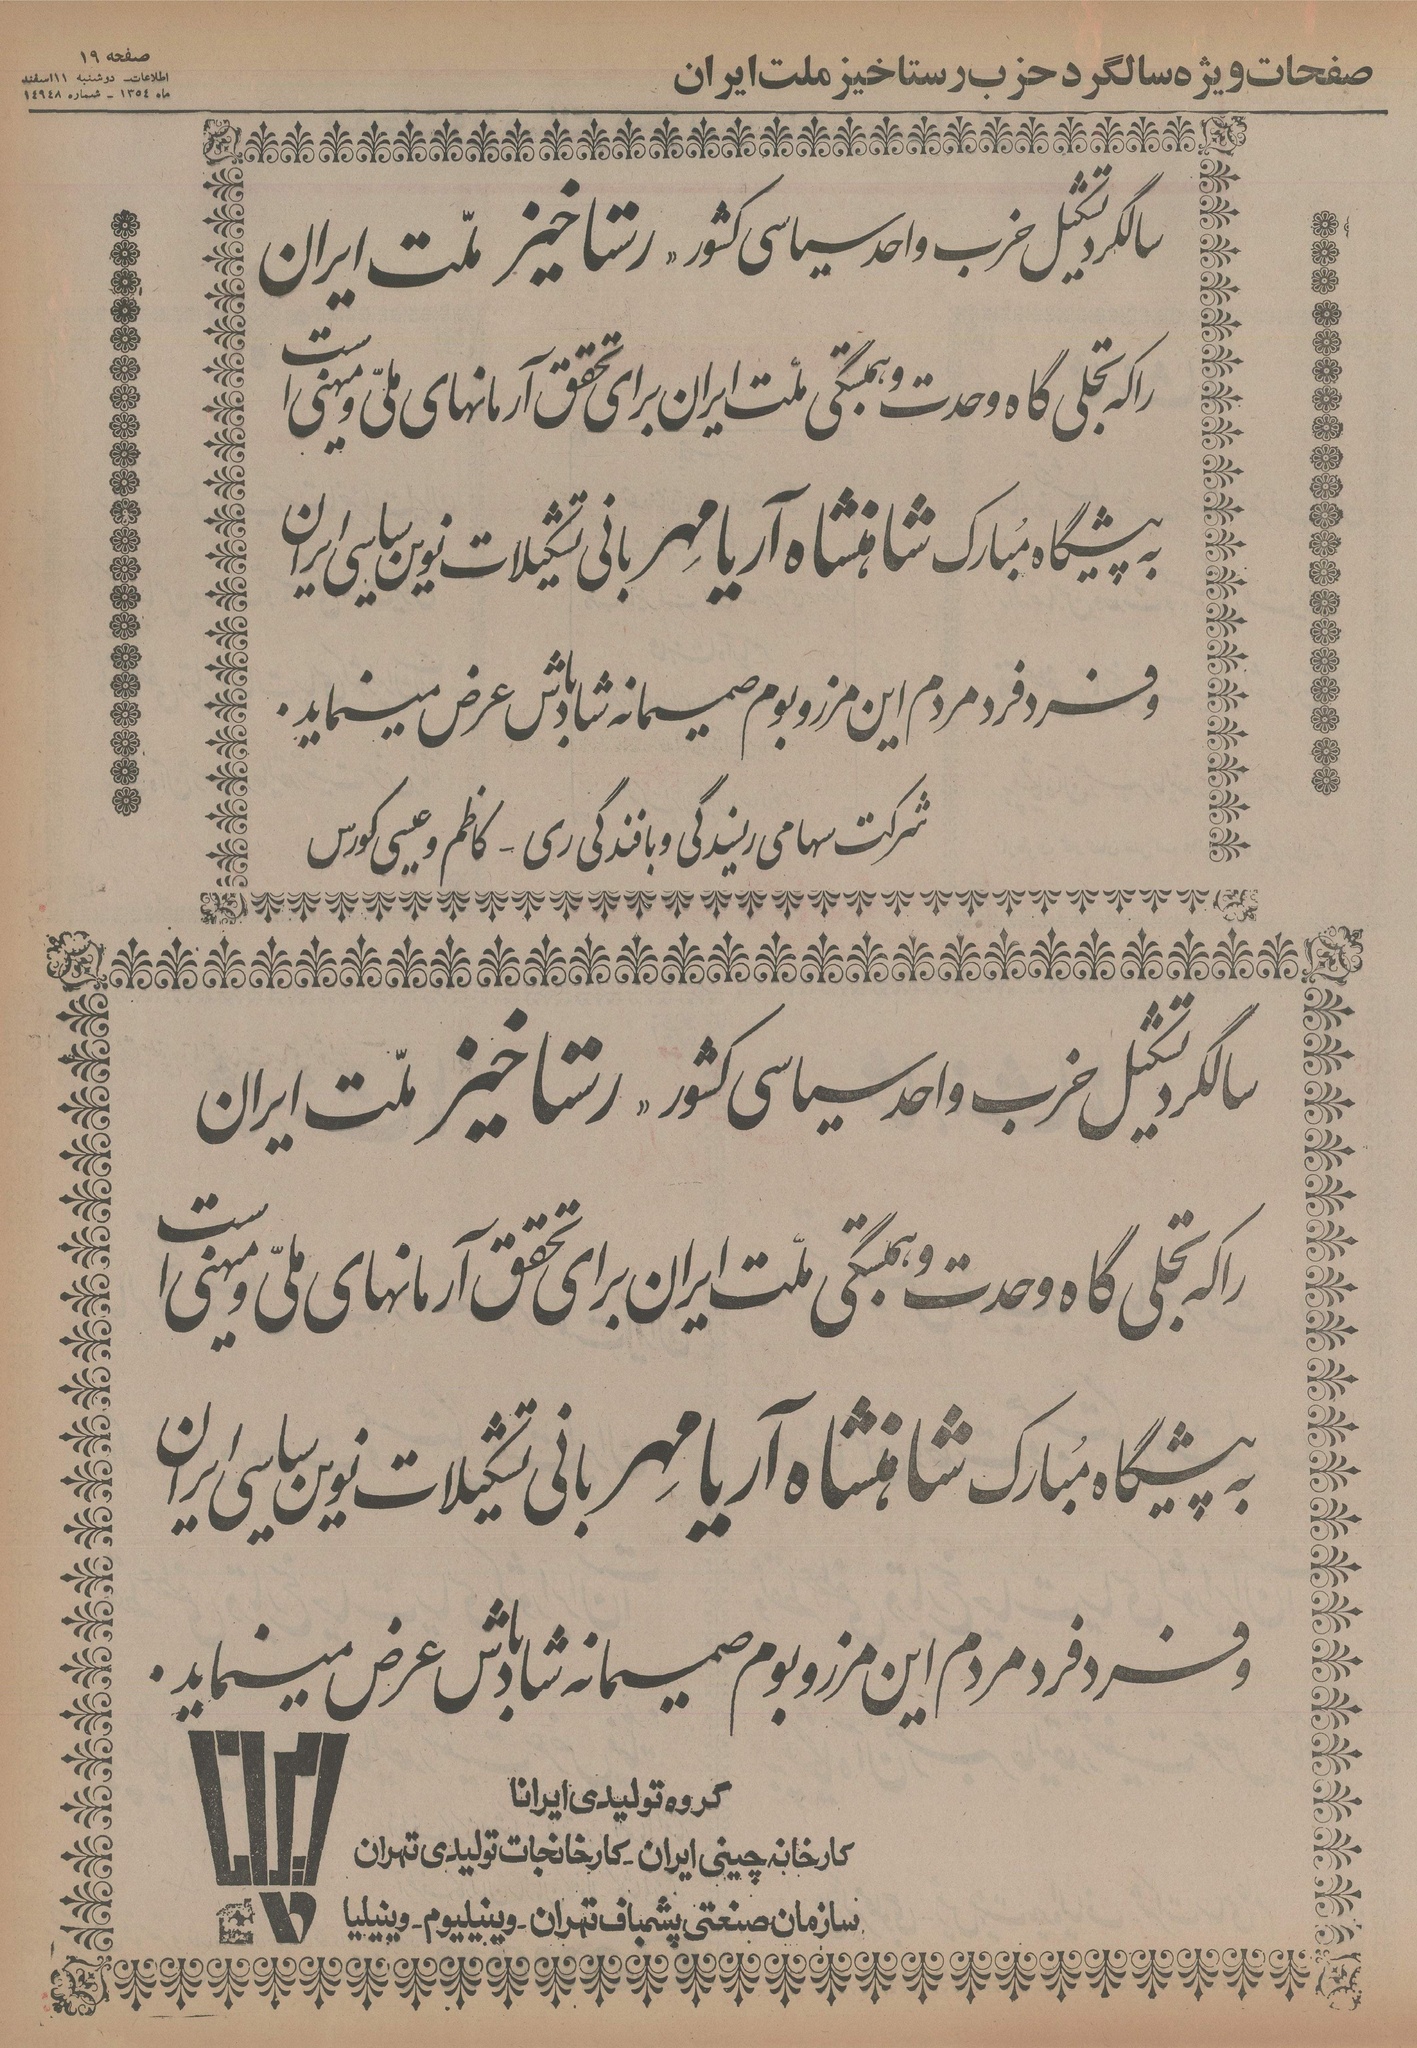 صفحات ویژه سالگرد حزب رستاخیز ملت ایران
صفحه ۱۹
اطلاعات ـ دوشنبه ۱۱ اسفند
ماه ۱۳۵۴ ـ شماره ۱۴۹۴۸
سالگرد تشکیل حزب واحد سیاسی کشور «رستاخیز ملّت ایران
را که تجلی گاه وحدت و همبستگی ملّت ایران برای تحقق آرمانهای ملّی و میهنی است
به پیشگاه مُبارک شاهنشاه آریامِهر بانی تشکیلات نوین سیاسی ایران
و فرد فرد مردم این مرز و بوم صمیمانه شادباش عرض مینماید.
شرکت سهامی ریسندگی و بافندگی ری ـ کاظم و عیسی کورس
سالگرد تشکیل حزب واحد سیاسی کشور «رستاخیز ملّت ایران
را که تجلی گاه وحدت و همبستگی ملّت ایران برای تحقق آرمانهای ملّی و میهنی است
به پیشگاه مُبارک شاهنشاه آریامِهر بانی تشکیلات نوین سیاسی ایران
و فرد فرد مردم این مرز و بوم صمیمانه شادباش عرض مینماید.
ایرانا
گروه تولیدی ایرانا
کارخانه چینی ایران ـ کارخانجات تولیدی تهران
سازمان صنعتی پشمباف تهران ـ وینیلیوم ـ وینیلیا